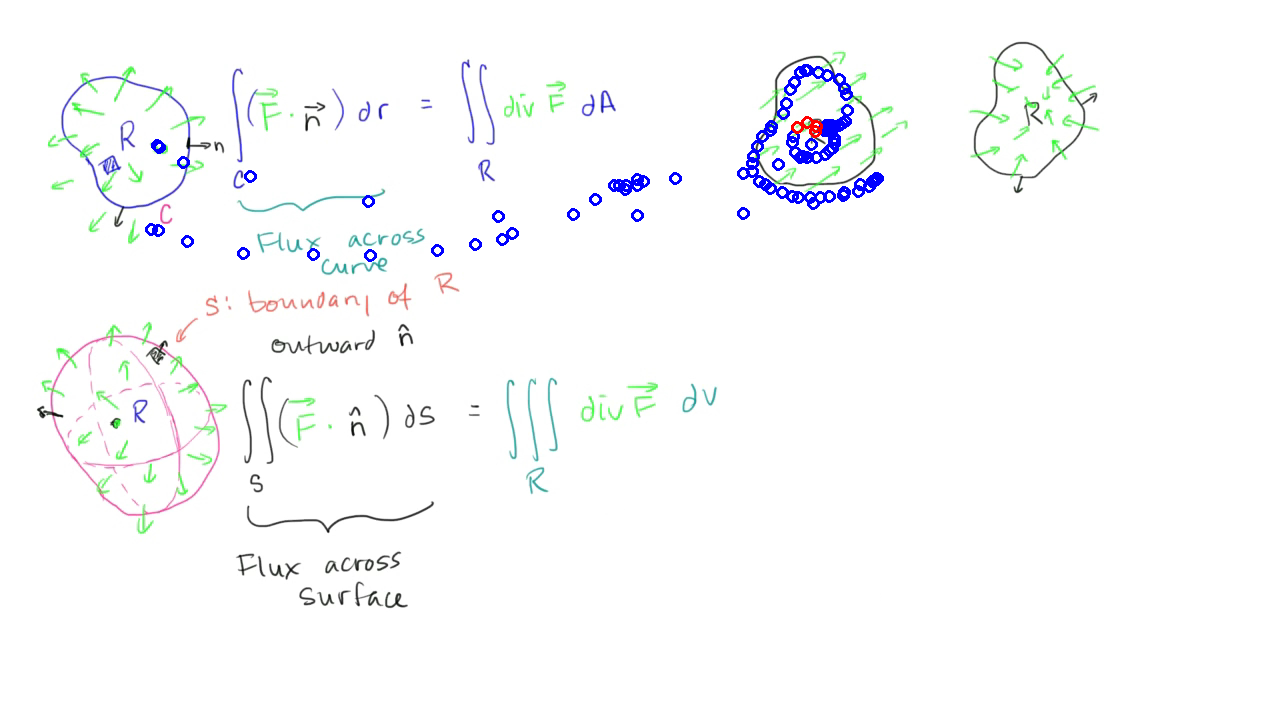 R
n
C
∫_C (F⃗ · n⃗) dr = ∬_R div F⃗ dA
Flux across
curve
R
S: boundary of R
outward n̂
R
∬_S (F⃗ · n̂) ds = ∭_R div F⃗ dv
Flux across
surface